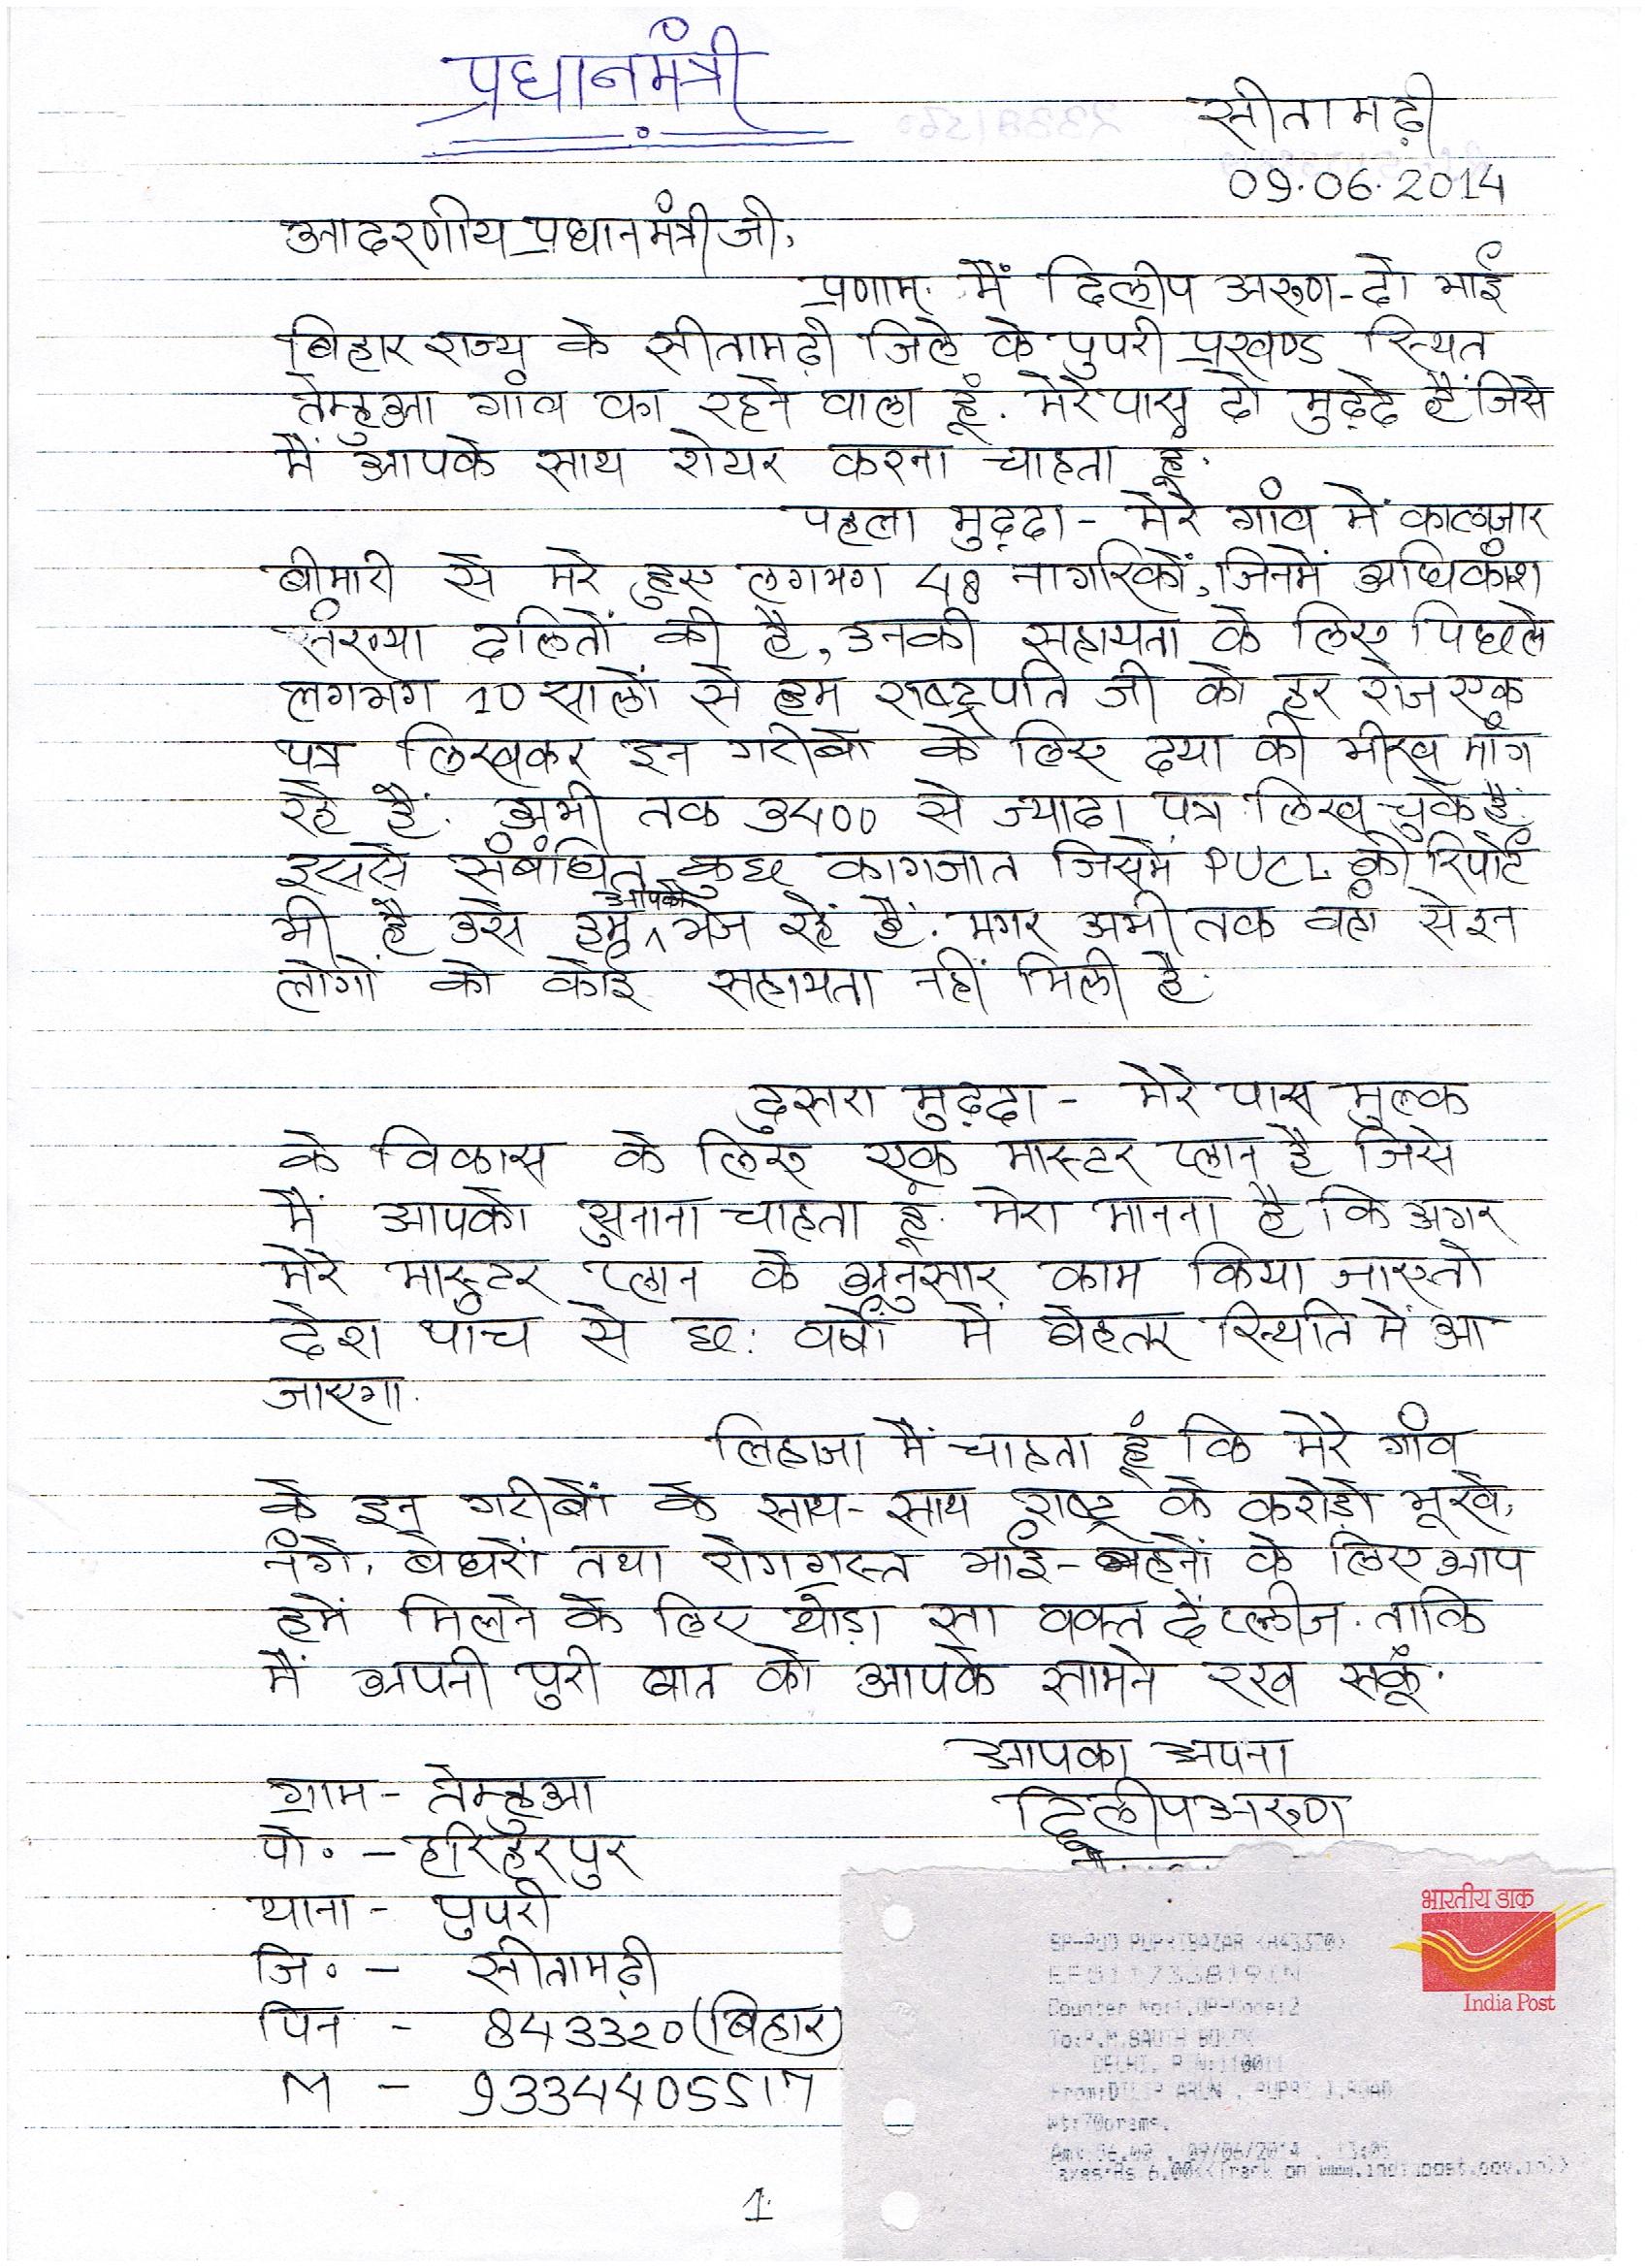 प्रधानमंत्री
सीतामढ़ी
09.06.2014
आदरणीय प्रधानमंत्री जी,
प्रणाम. मैं दिलीप अरुण-दो भाई
बिहार राज्य के सीतामढ़ी जिले के पुपरी प्रखण्ड स्थित
तेम्हुआ गाँव का रहने वाला हूं. मेरे पास दो मुद्दे हैं जिसे
मैं आपके साथ शेयर करना चाहता हूं.
पहला मुद्दा - मेरे गाँव में कालाजार
बीमारी से मरे हुए लगभग 48 नागरिकों, जिनमें अधिकाँश
संख्या दलितों की है, उनकी सहायता के लिए पिछले
लगभग 10 सालों से हम राष्ट्रपति जी को हर रोज एक
पत्र लिखकर इन गरीबों के लिए दया की भीख माँग
रहे हैं. अभी तक 3400 से ज्यादा पत्र लिख चुके हैं.
इससे संबंधित कुछ कागजात जिसमें PUCL की रिपोर्ट
भी है उसे हम आपको भेज रहें हैं. मगर अभी तक वहां से इन
लोगों को कोई सहायता नहीं मिली है.
दुसरा मुद्दा - मेरे पास मुल्क
के विकास के लिए एक मास्टर प्लान है जिसे
मैं आपको सुनाना चाहता हूं. मेरा मानना है कि अगर
मेरे मास्टर प्लान के अनुसार काम किया जाए तो
देश पाँच से छः वर्षों में बेहतर स्थिति में आ
जाएगा.
लिहाजा मैं चाहता हूं कि मेरे गाँव
के इन गरीबों के साथ-साथ राष्ट्र के करोड़ो भूखे,
नंगे, बेघरों तथा रोगग्रस्त भाई-बहनों के लिए आप
हमें मिलने के लिए थोड़ा सा वक्त दें प्लीज. ताकि
मैं अपनी पुरी बात को आपके सामने रख सकूं.
आपका अपना
दिलीप अरुण
ग्राम - तेम्हुआ
पो. - हरिहरपुर
थाना - पुपरी
जि. - सीतामढ़ी
पिन - 843320 (बिहार)
M - 9334405517
भारतीय डाक
India Post
Counter No:1,OP-Code:2
DELHI,
From:DILIP ARUN ,
Wt:70grams,
09/06/2014
Taxes:Rs 6.00<<Track on www.indiapost.gov.in>>
1